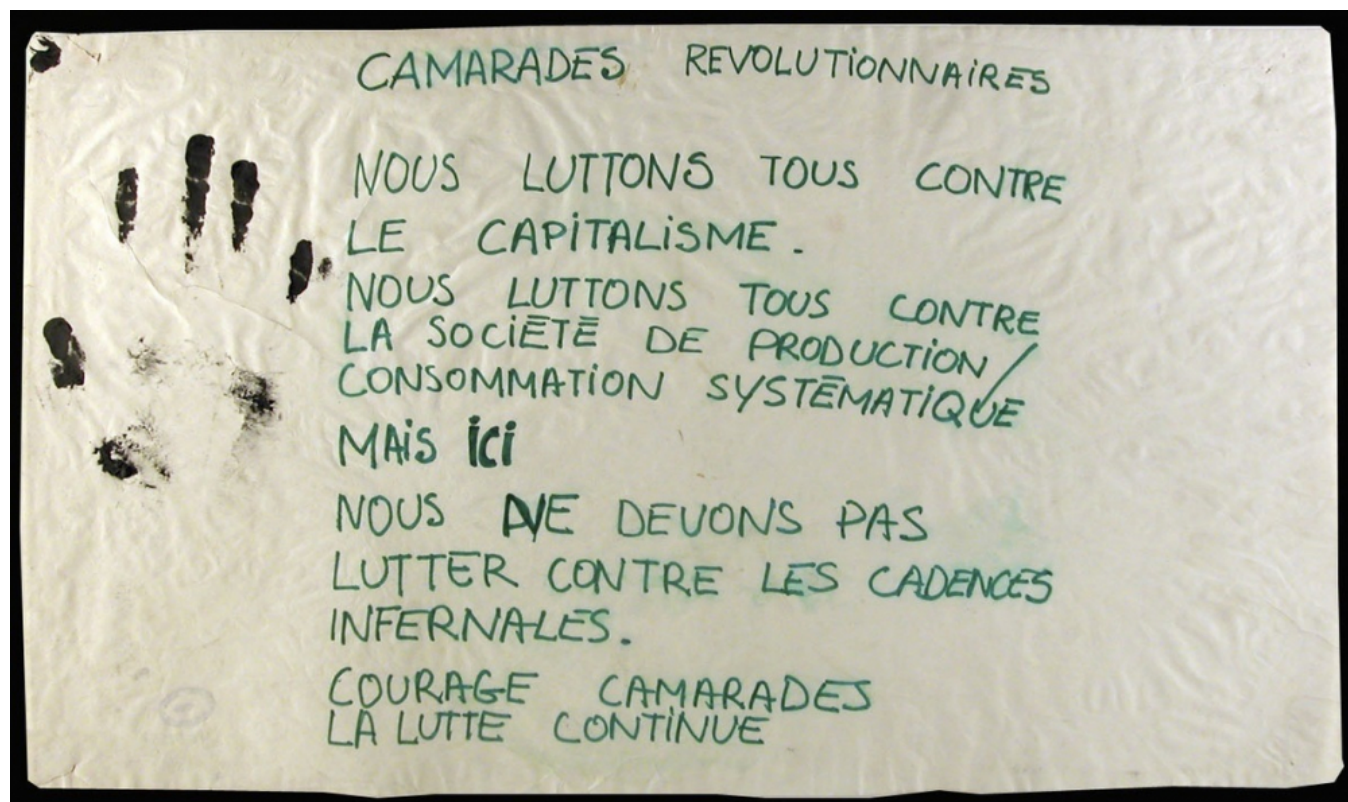 CAMARADES REVOLUTIONNAIRES
NOUS LUTTONS TOUS CONTRE
LE CAPITALISME.
NOUS LUTTONS TOUS CONTRE
LA SOCIÉTÉ DE PRODUCTION/
CONSOMMATION SYSTÉMATIQUE
MAIS ICI
NOUS NE DEVONS PAS
LUTTER CONTRE LES CADENCES
INFERNALES.
COURAGE CAMARADES
LA LUTTE CONTINUE